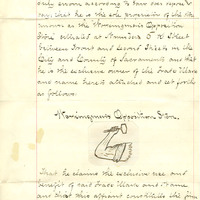 only person according to law who
says, that he is the sole proprietor of the
known as the Workingmen's Opposition
Store situated at Number K Street
between Front and Second Streets in the
City and County of Sacramento and that
he is the exclusive owner of the Trade Mark
and name hereto attached and set forth
as follows:
Workingmens Opposition Store.
That he claims the exclusive use and
benefit of said Trade Mark and Name
and that this affiant constitutes the firm